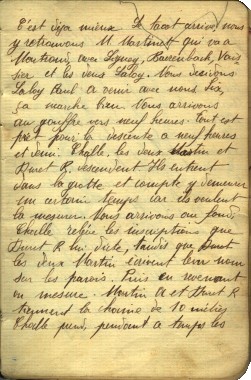 C'est déjà mieux. Le tacot arrive, nous
y retrouvons M Martinet qui va à
avec
sier et les deux Laloy. Nous décidons
Laloy Paul à venir avec nous
ça marche bien. Nous arrivons
au gouffre vers neuf heures. Tout est
prêt pour la descente à neuf heures
et demi. Challe, les deux Martin et
Duret R. descendent. Ils entrent
dans la grotte et compte y demeurer
un certain temps car ils veulent
la mesurer. Nous arrivons au fond,
Challe relève les inscriptions que
Duret R lui dicte, tandis que
les deux Martin écrivent leur nom
sur les parois. Puis en revenant
on mesure. Martin A et Duret R
tiennent la chaine de 10 mètres
Challe prend, pendant ce temps les